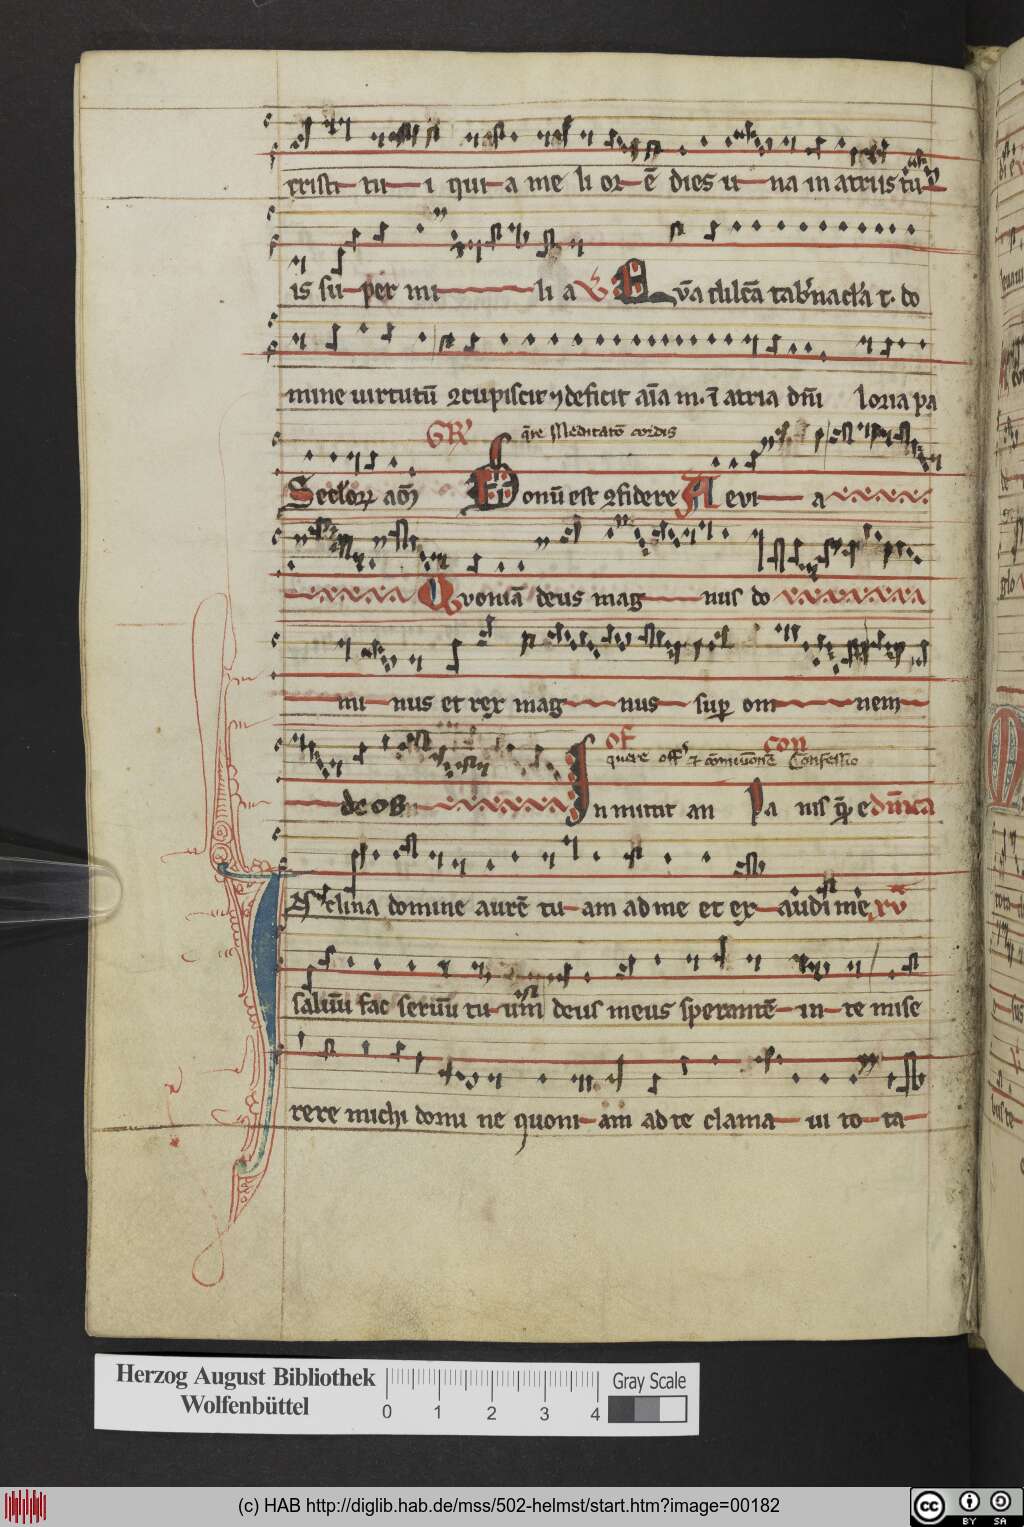 cristi tu i qui a me li or ē dies u na in atriis tu
is su per mi li a V Qv̄a dilcā tab'nacl'a t. do
mine uirtutū ꝯcupiscit ⁊ deficit aīa m. ī atria dn̄i loria pa
GR' q̄re Meditatō cordis
Sec'lorꝝ am̄ Bonū est ꝯfidere A evi a
Qvoniā deus mag nus do
mi nus et rex mag nus sup om nem
OF quere off' ⁊ cōmūionē con Confessio
de os In mittit an Pa nis qē e dn̄ica
clina domine aurē tu am ad me et ex audi me xv
saluū fac seruū tu um deus meus sperantē in te mise
rere michi domi ne quoni am ad te clama ui to ta
Herzog August Bibliothek
Wolfenbüttel
0 1 2 3 4
Gray Scale
(c) HAB http://diglib.hab.de/mss/502-helmst/start.htm?image=00182
cc BY SA